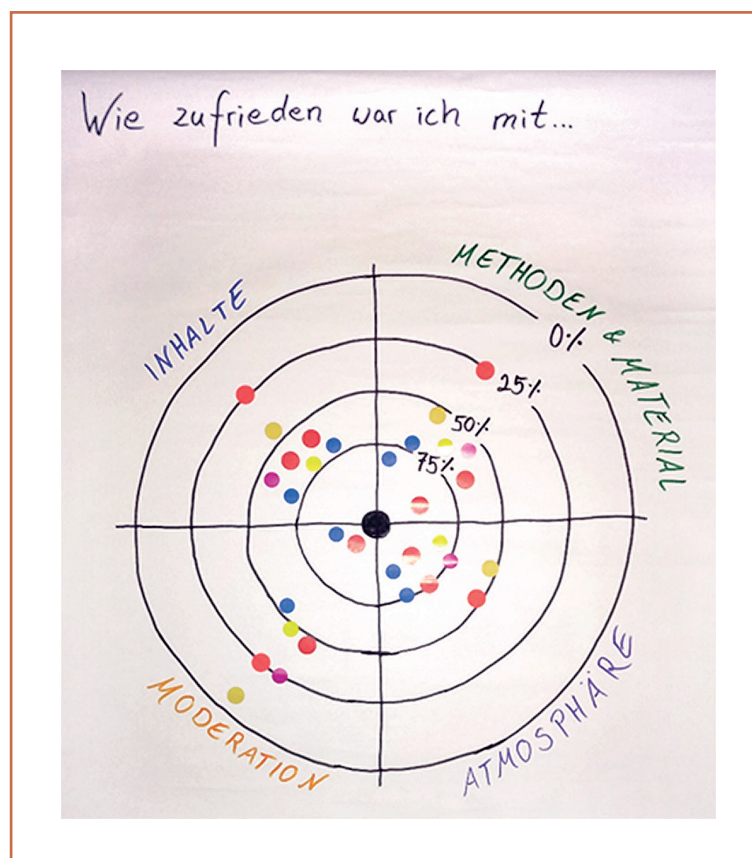 Wie zufrieden war ich mit...
INHALTE
METHODEN & MATERIAL
0%
25%
50%
75%
MODERATION
ATMOSPHÄRE